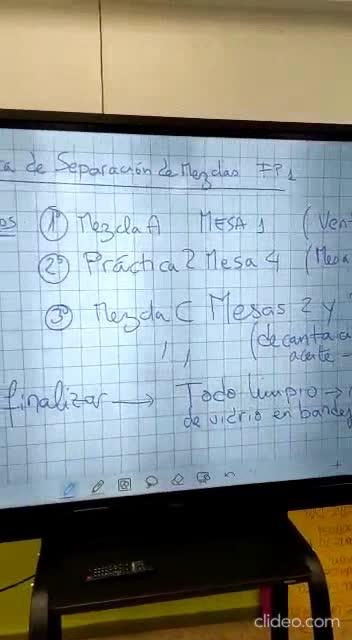 a de Separación de Mezclas FP1
os 1º Mezcla A MESA 1 (Ven
2º Práctica 2 Mesa 4 (Mesa
3º Mezcla C Mesas 2 y
(decanta
aceite -
finalizar → Todo limpio →
de vidrio en bande
clideo.com